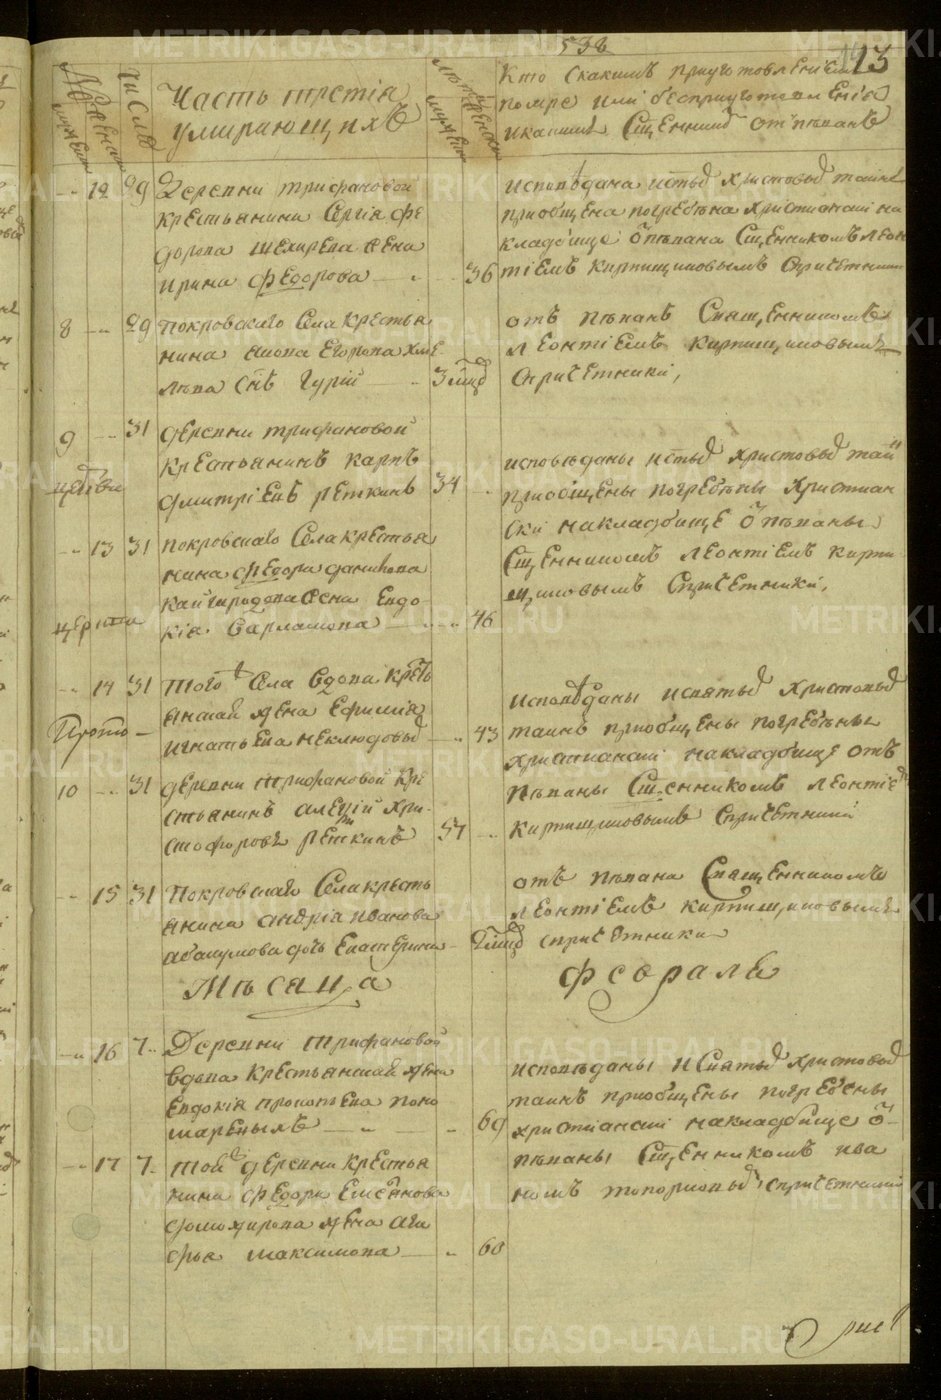 538
13
Часть третія
умирающихъ
Кто Скакимъ приуготовлениемъ
помре или безприуготовленія
икакимъ Сщенникомъ отпѣванъ
12 29 Деревни трифановой
крестьянина Сергія фе
дорова жена
ирина федорова 36
исповѣдана истых христовых таинъ
приобщена погребена христиански на
кладбище отпѣвана Сщенникомъ леон
тіемъ кирпищиковымъ Спричетники
8 29 Покровскаго Села крестья
нина якова Егорова
Снъ Гурій 3 мцд
отпѣванъ Священникомъ
леонтіемъ кирпищиковымъ
Спричетники,
9 31 деревни трифановой
крестьянинъ карпъ
дмитріевъ реткинъ 34
исповѣданы истых христовых таин
приобщены погребены христиан
ски накладбище отпѣваны
Сщенникомъ леонтіемъ кирпи
щиковымъ Спричетники,
13 31 покровскаго Села крестья
нина федора данилова
кайгородова жена Евдо
кія Варламова 46
14 31 того Села вдова крестья
нская жена Ефимия
игнатьева неклюдовых 43
исповѣданы исвятых христовых
таинъ приобщены погребены
христиански накладбище от
пѣваны Сщенникомъ леонтіе
кирпищиковымъ Спричетники
10 31 деревни трифановой кре
стьянинъ алексий хри
стофоровъ реткинъ 57
15 31 Покровскаго Села кресть
янина андрія иванова
абакумова дочь Екатерина 2 мцд
отпѣвана Священникомъ
леонтіемъ кирпищиковымъ
спричетники
Мѣсяца Февраля
16 7 Деревни трифановой
вдова крестьянская жена
Евдокія прокопьева поно
маревыхъ 69
исповѣданы и Святых христовых
таинъ приобщены погребены
христиански накладбище от
пѣваны Сщенникомъ ива
номъ топорковых спричетники
17 7 той деревни крестья
нина федора
доможирова жена ага
фья максимова 60